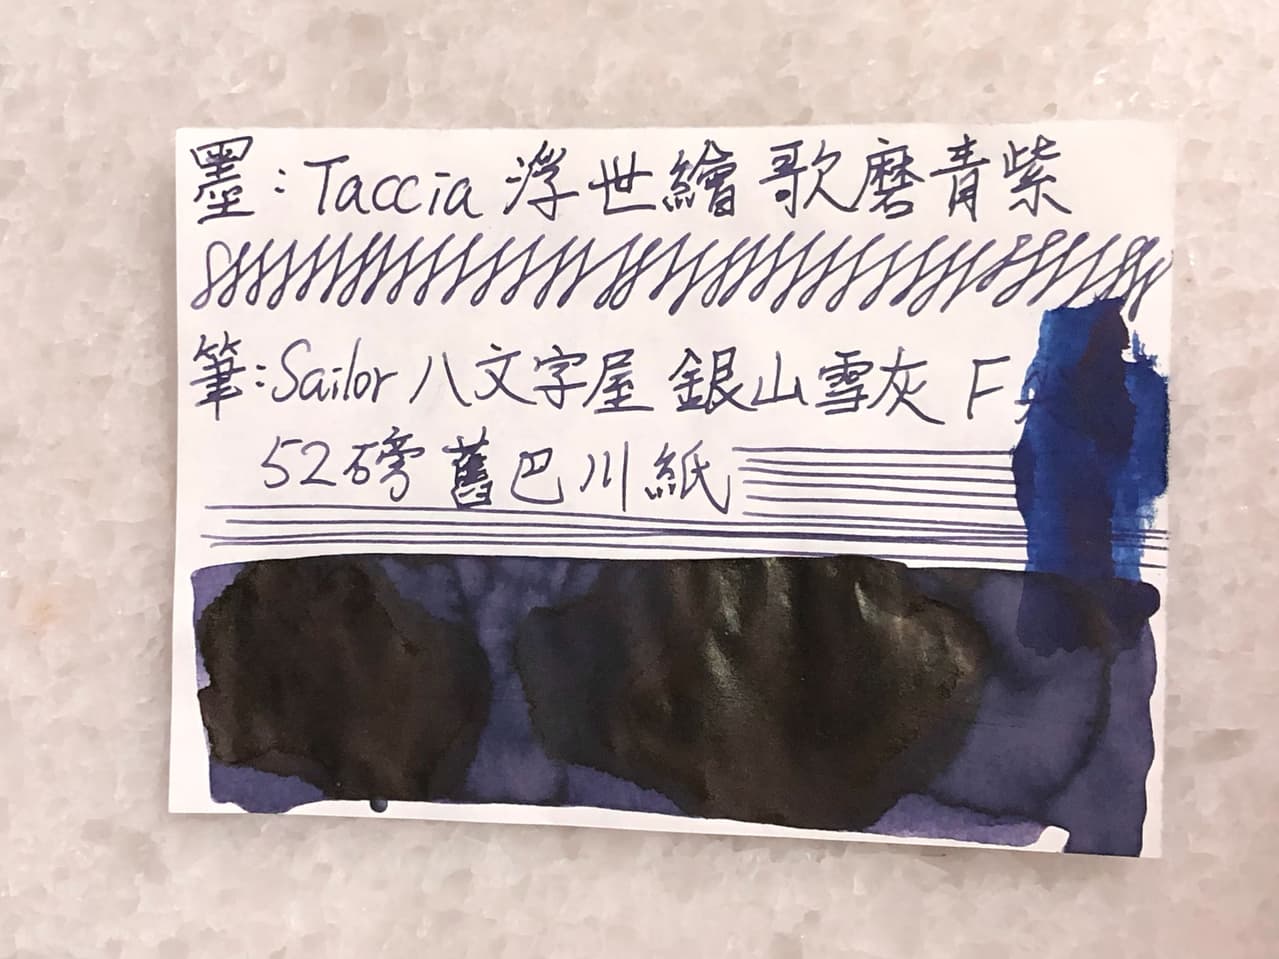 墨：Taccia 浮世繪 歌磨青紫
筆：Sailor 八文字屋 銀山雪灰 F
52磅 舊巴川紙